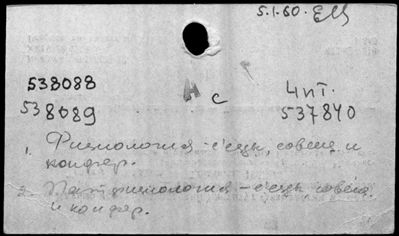 5.I.60.
538088
Н с
4 пт.
538089
537840
1. Физиология - съезды, совещ. и
конфер.
2. Пат. физиология - съезды совещ.
и конфер.